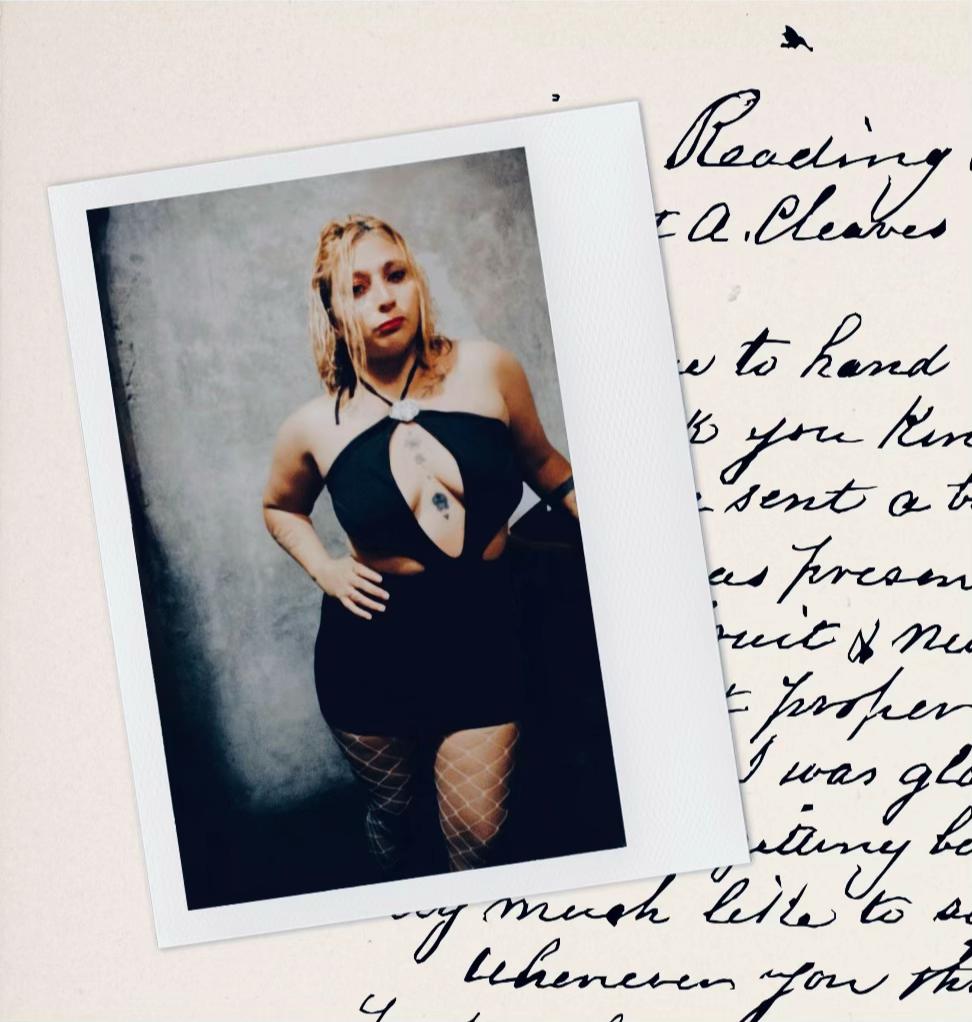 Reading
A. Cleaves
to hand
you Kin
sent a b
as presen
ruit & Ne
t proper
I was gla
itting be
much like to s
Whenever you th